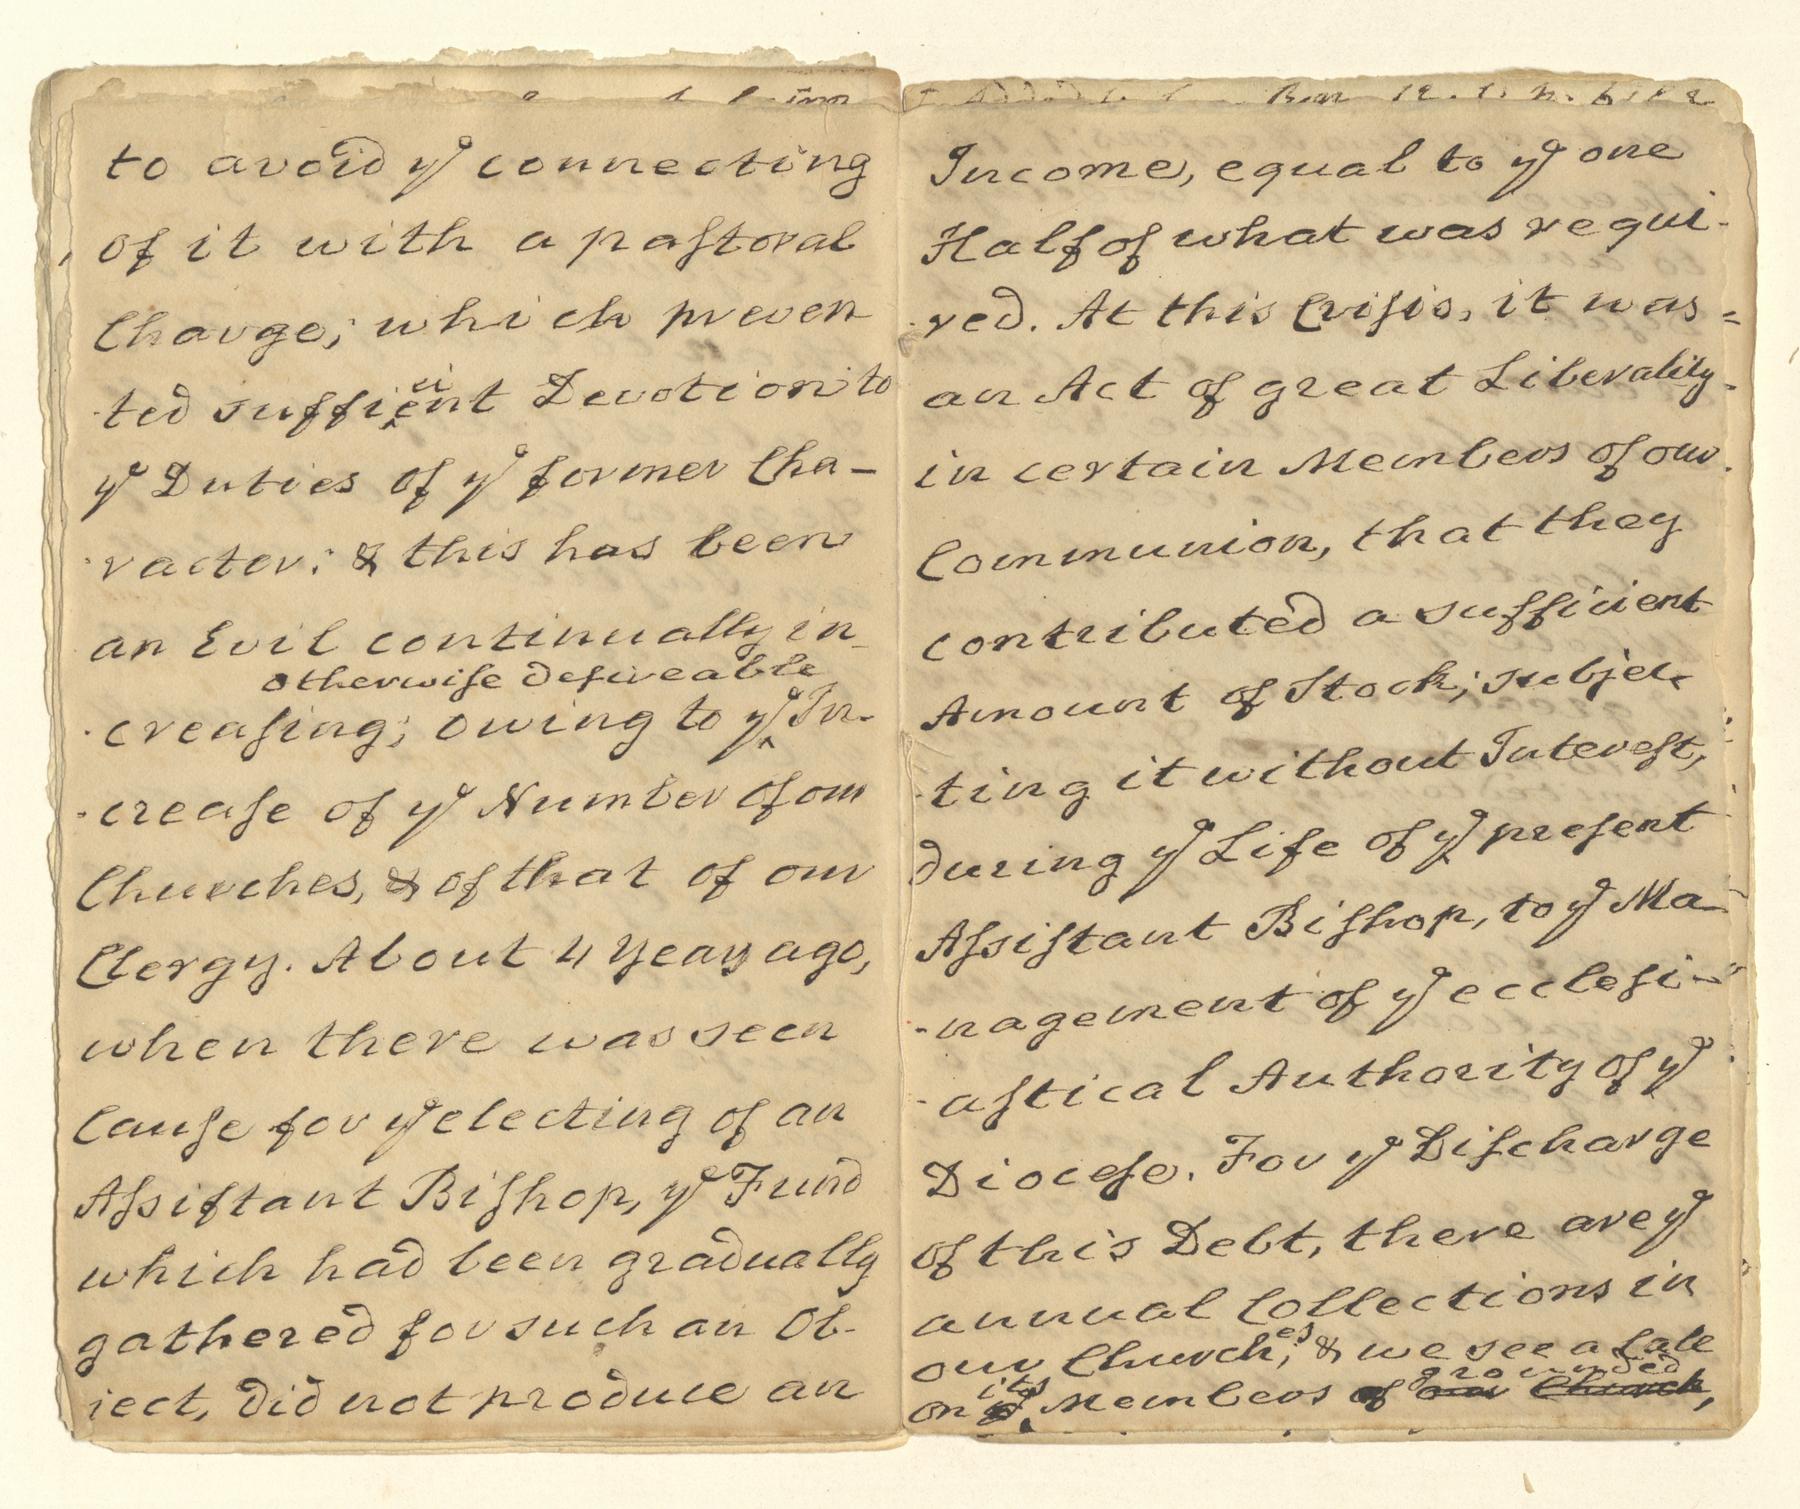 to avoid yᵉ connecting
of it with a paſtoral
Charge; which preven
ted suffieient Devotion to
yᵉ Duties of yᵉ former Cha-
racter: & this has been
an Evil continually in-
otherwiſe deſireable
creaſing; owing to yᵉ In-
creaſe of yᵉ Number of our
Churches, & of that of our
Clergy. About 4 Years ago,
when there was seen
Cauſe for yᵉ electing of an
Aſsiſtant Biſhop, yᵉ Fund
which had been gradually
gathered for such an Ob-
ject, did not produce an
Income, equal to yᵉ one
Half of what was requi-
red. At this Criſis, it was
an Act of great Liberality
in certain Members of our
Communion, that they
contributed a sufficient
Amount of Stock; subjec
ting it without Intereſt,
during yᵉ Life of yᵉ preſent
Aſsiſtant Biſhop, to yᵉ Ma-
nagement of yᵉ eccleſi-
aſtical Authority of yᵉ
Dioceſe. For yᵉ Diſcharge
of this Debt, there are yᵉ
annual Collections in
our Churches; & we see a Call
its grounded
on yᵉ Members of our Church,